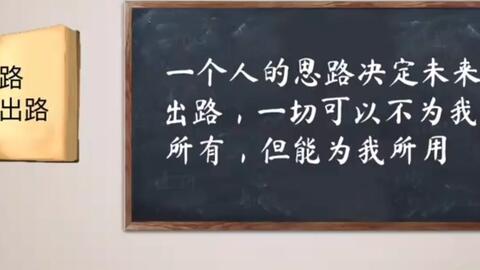 路
出路
一个人的思路决定未来
出路，一切可以不为我
所有，但能为我所用